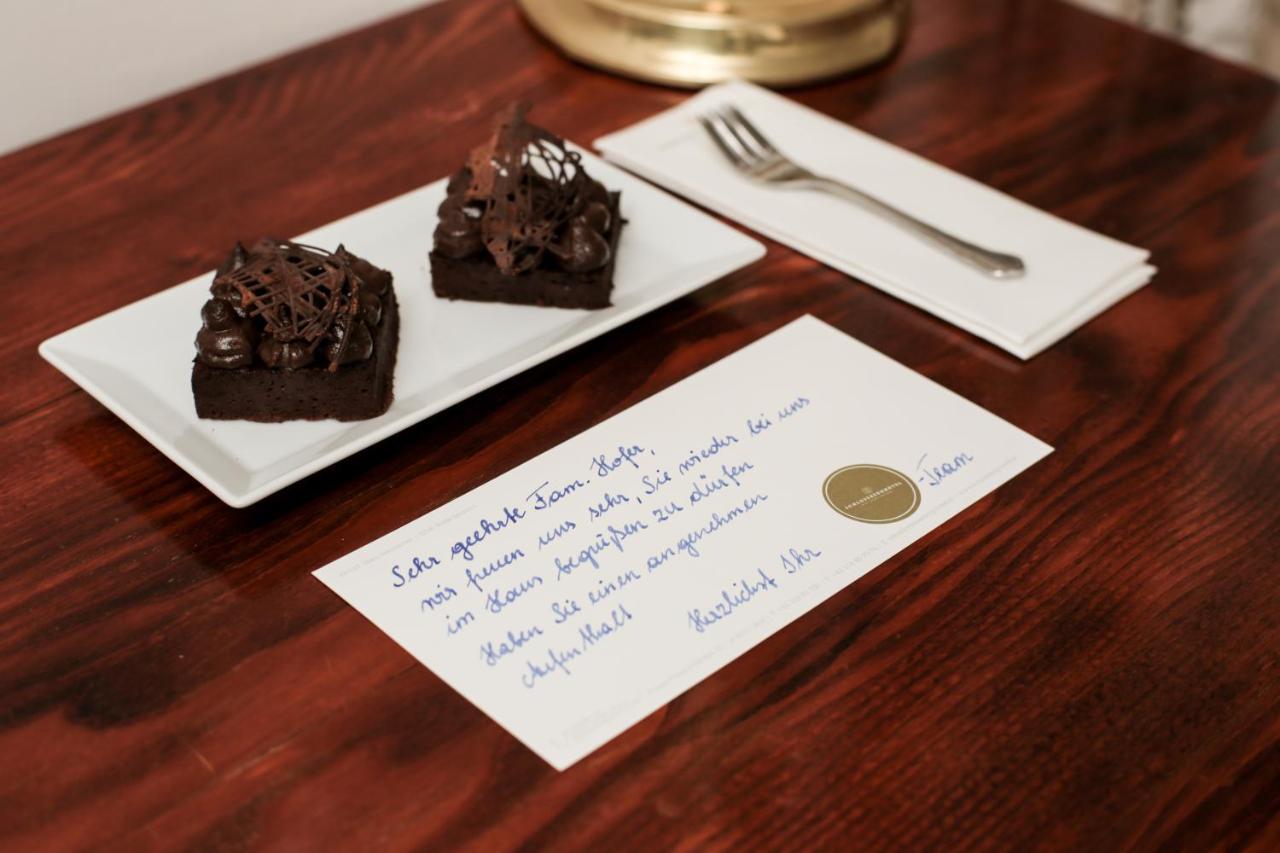 Sehr geehrte Fam. Hofer,
wir freuen uns sehr, Sie wieder bei uns
im Haus begrüßen zu dürfen
Haben Sie einen angenehmen
Aufenthalt
Herzlichst Ihr
SCHLOSSBERGHOTEL
-Team